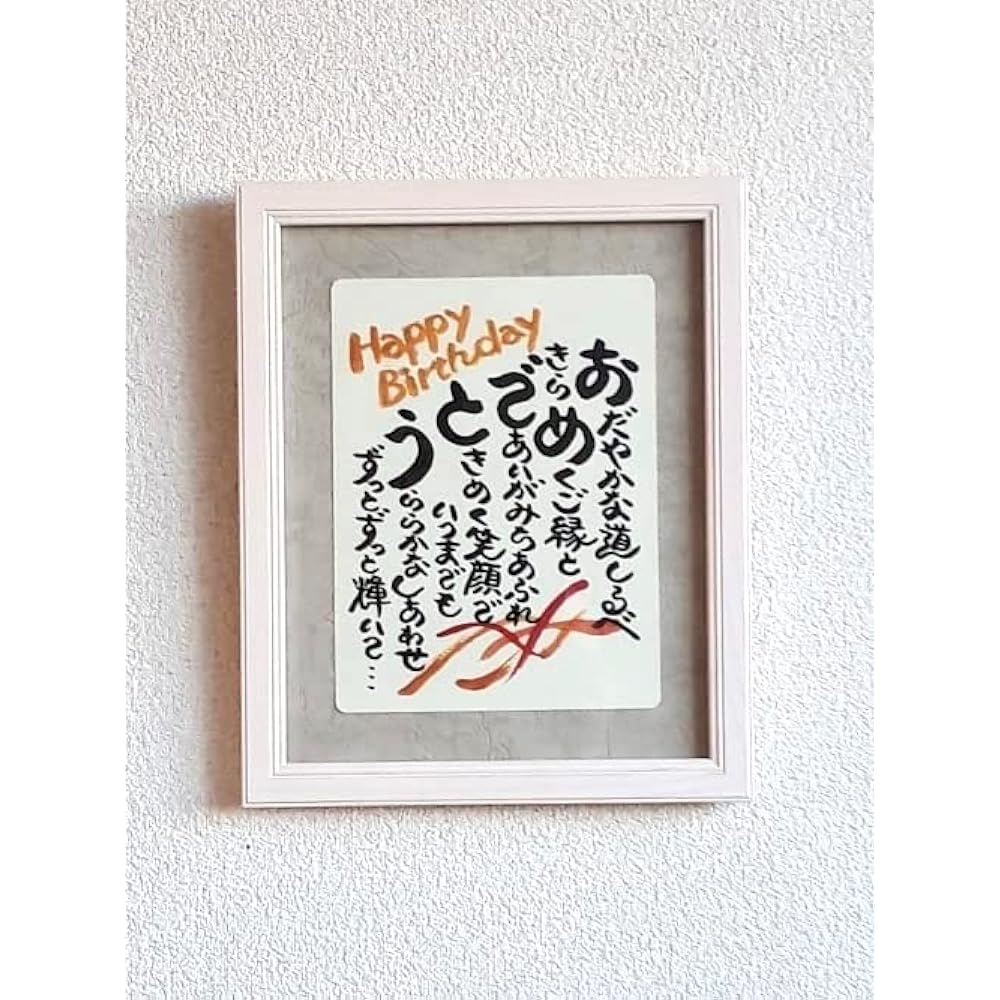 Happy
Birthday
おだやかな道しるべ
きらめくご縁と
であいがみちあふれ
ときめく笑顔で
いつまでも
うららかなしあわせ
ずっとずっと輝いて…